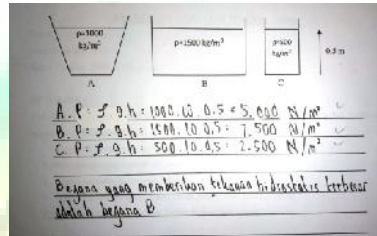 ρ=1000 ρ=1500 kg/m³ ρ=500
kg/m³ kg/m³
0.5 m
A B C
A. P = ρ.g.h = 1000.10.0.5 = 5.000 N/m²
B. P = ρ.g.h = 1500.10.0,5 = 7.500 N/m²
C. P = ρ.g.h = 500.10.0,5 = 2.500 N/m²
Bejana yang memberikan tekanan hidrostatis terbesar
adalah bejana B